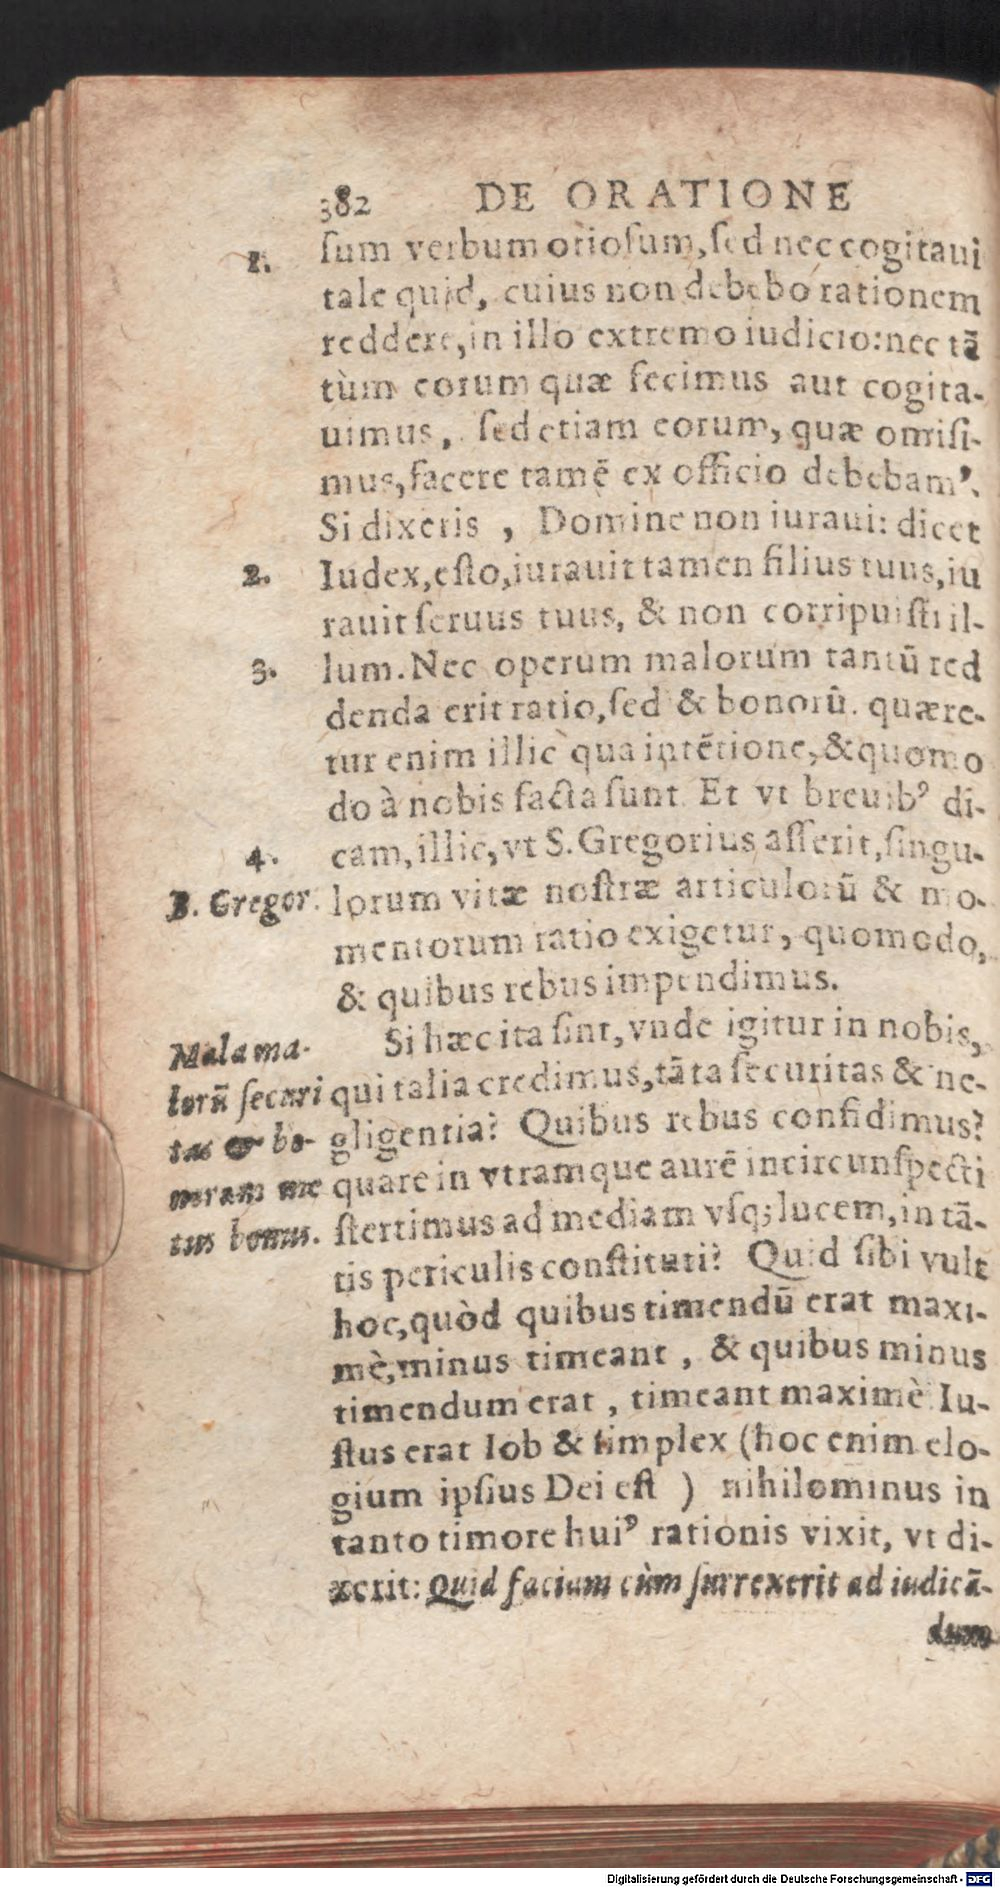 382 DE ORATIONE
1.
ſum verbum otioſum, ſed nec cogitaui
tale quid, cuius non debebo rationem
reddere, in illo extremo iudicio: nec tā
tùm eorum quæ fecimus aut cogita-
uimus, ſed etiam eorum, quæ omiſi-
mus, facere tamē ex officio debebamꝰ.
Si dixeris , Domine non iuraui: dicet
2.
Iudex, eſto, iurauit tamen filius tuus, iu
rauit ſeruus tuus, & non corripuiſti il-
3.
lum. Nec operum malorum tantū red
denda erit ratio, ſed & bonorū. quære-
tur enim illic qua intētione, & quomo
do à nobis facta ſunt. Et vt breuibꝰ di-
4.
cam, illic, vt S. Gregorius aſſerit, ſingu-
B. Gregor.
lorum vitæ noſtræ articulorū & mo-
mentorum ratio exigetur, quomodo,
& quibus rebus impendimus.
Si hæc ita ſint, vnde igitur in nobis,
qui talia credimus, tāta ſecuritas & ne-
gligentia? Quibus rebus confidimus?
quare in vtramque aurē incircunſpecti
ſtertimus ad mediam vſq; lucem, in tā-
tis periculis conſtituti? Quid ſibi vult
Mala ma-
lorū ſecuri
tas & bo-
norum me
tus bonus.
hoc, quòd quibus timendū erat maxi-
mè, minus timeant , & quibus minus
timendum erat , timeant maximè Iu-
ſtus erat Iob & ſimplex (hoc enim elo-
gium ipſius Dei eſt ) nihilominus in
tanto timore huiꝰ rationis vixit, vt di-
xerit: Quid faciam cùm ſurrexerit ad iudicā-
dum
Digitalisierung gefördert durch die Deutsche Forschungsgemeinschaft - DFG